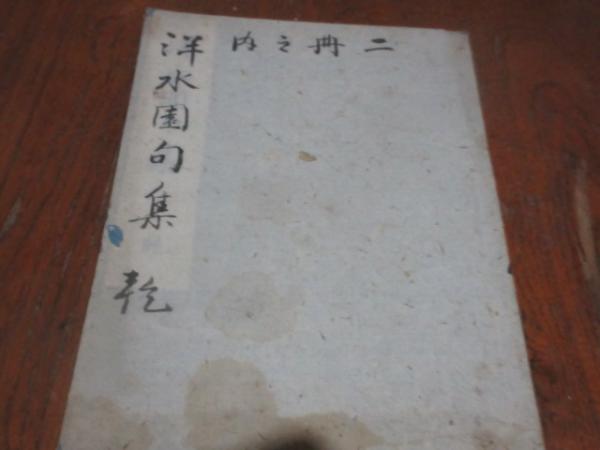 二冊之内
洋水園句集 乾